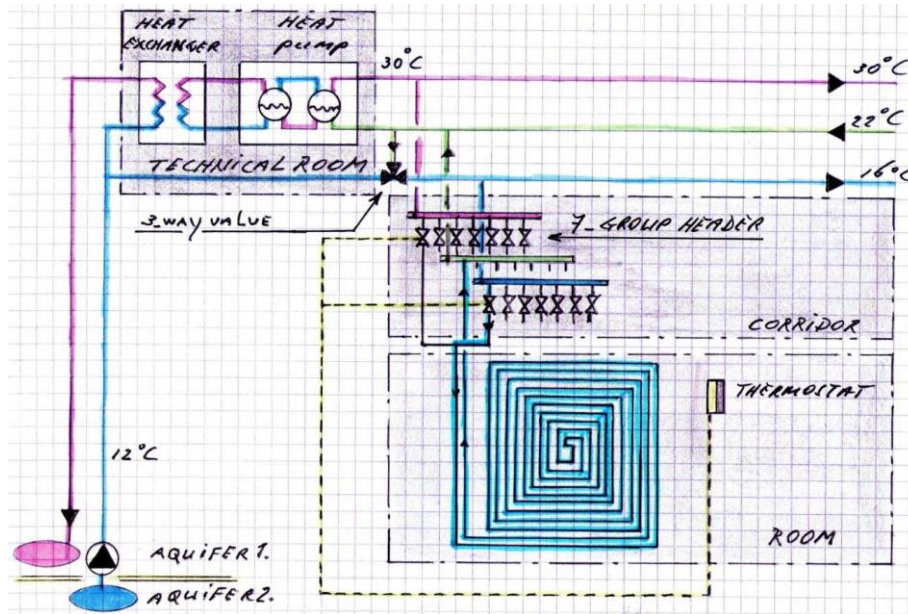 HEAT
EXCHANGER
HEAT
PUMP
30°C
30°C
22°C
TECHNICAL ROOM
16°C
3-WAY VALVE
7-GROUP HEADER
CORRIDOR
THERMOSTAT
12°C
ROOM
AQUIFER 1.
AQUIFER 2.